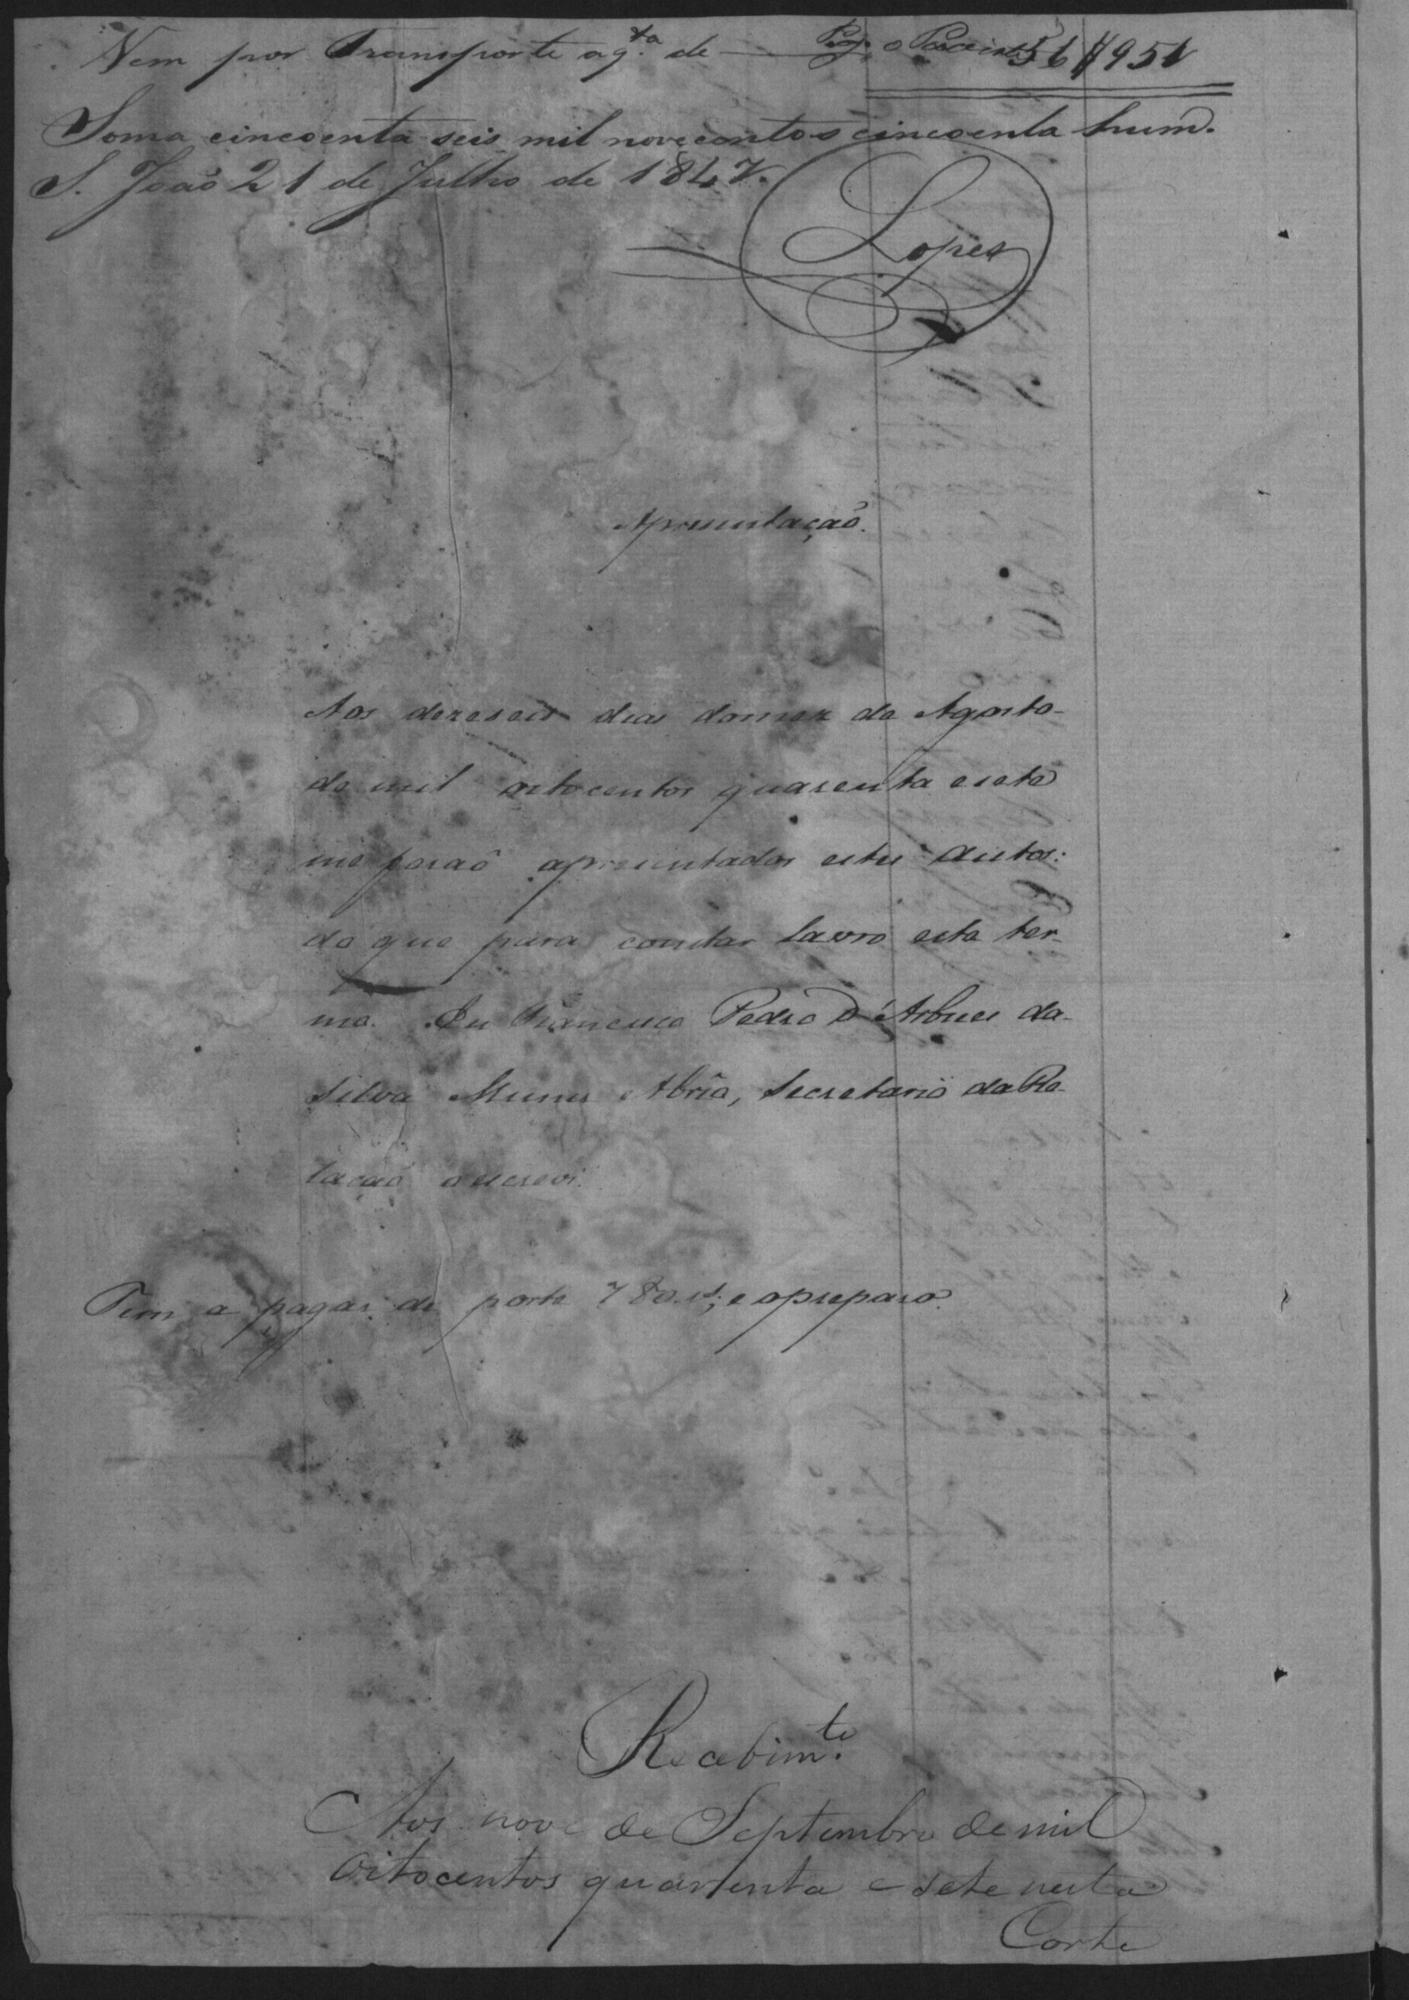 Vem por Transporte a q.ta de 56$951
Soma cincoenta seis mil novecentos cincoenta hum.
S. Joaõ 21 de Julho de 1847.
Lopes
Apresentaçaõ.
Aos dezeseis dias domez de Agosto
de mil oitocentos quarenta esete
me foraõ apresentados estes autos:
do que para constar lavro este ter-
mo. Eu Francisco Pedro D'Arbues da
Silva Muniz Abreu, Secretario da Re-
laçaõ o escrevi.
Tem a pagar de porte 780 rs; e opreparo.
Recebim.to
Aos nove de Septembro de mil
oitocentos quarenta e sete nesta
Corte